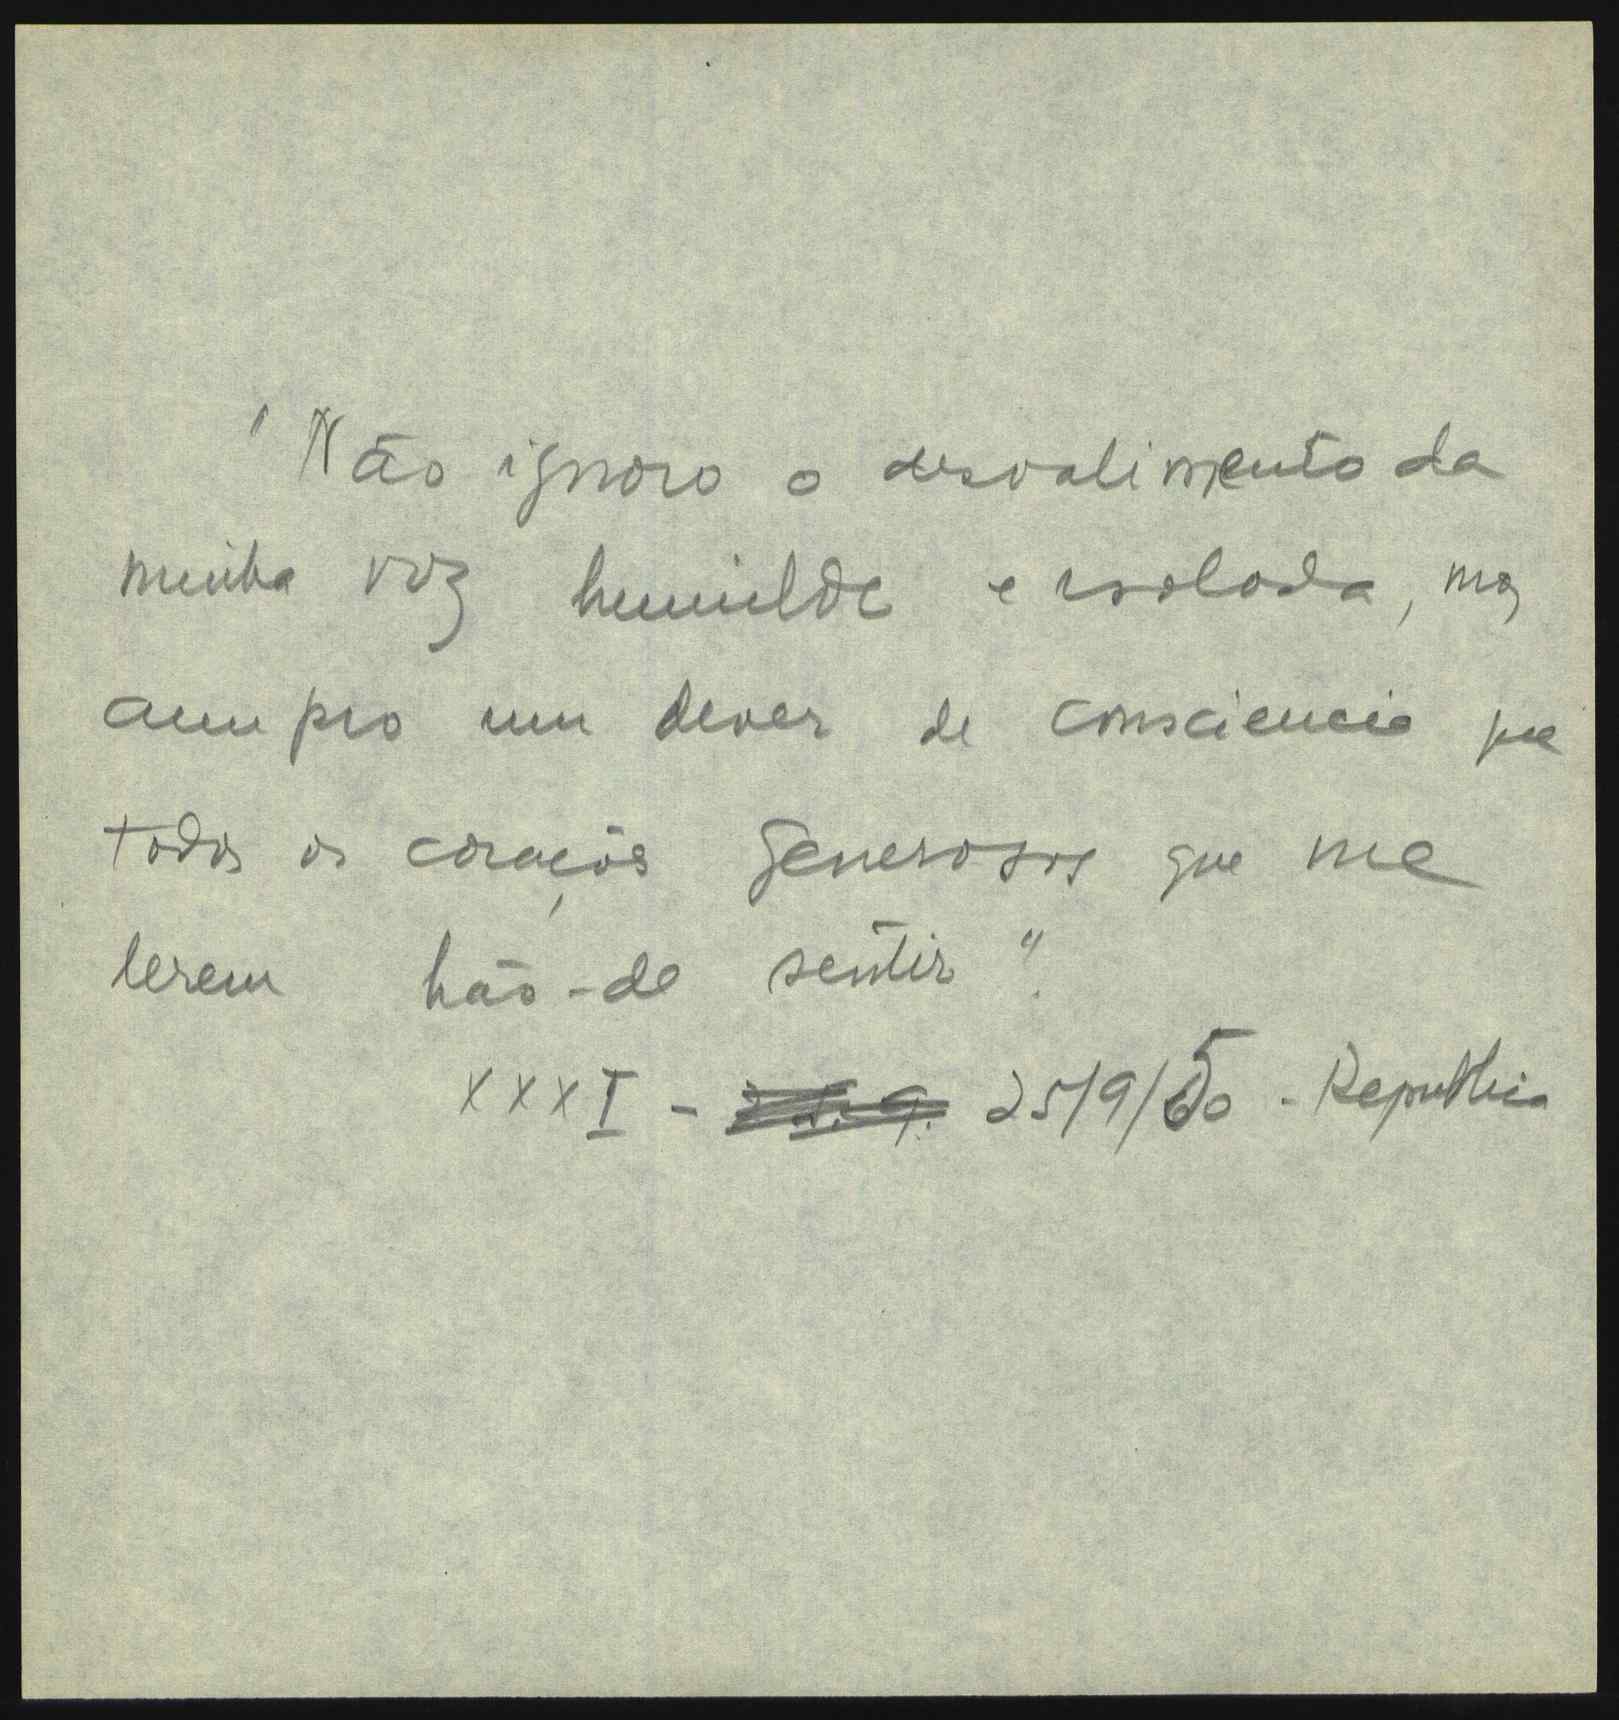 "Não ignoro o desvalimento da
minha voz humilde e isolada, mas
cumpro um dever de consciencia que
todos os corações generosos que me
lerem hão-de sentir".
XXXI - 25/9/50 - Republica